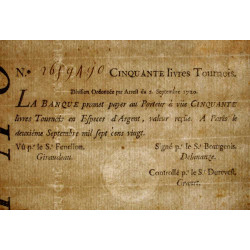 N.º 2659490 CINQUANTE livres Tournois.
Division Ordonnée par Arrest du 2. Septembre 1720.
LA BANQUE promet payer au Porteur à vüe CINQUANTE
livres Tournois en Especes d'Argent, valeur reçüe. A Paris le
deuxième Septembre mil sept cens vingt.
Vû p.r le S.r Fenellon. Signé p.r le S.r Bourgeois.
Giraudeau. Delanauze.
Controllé p.r le S.r Durevest.